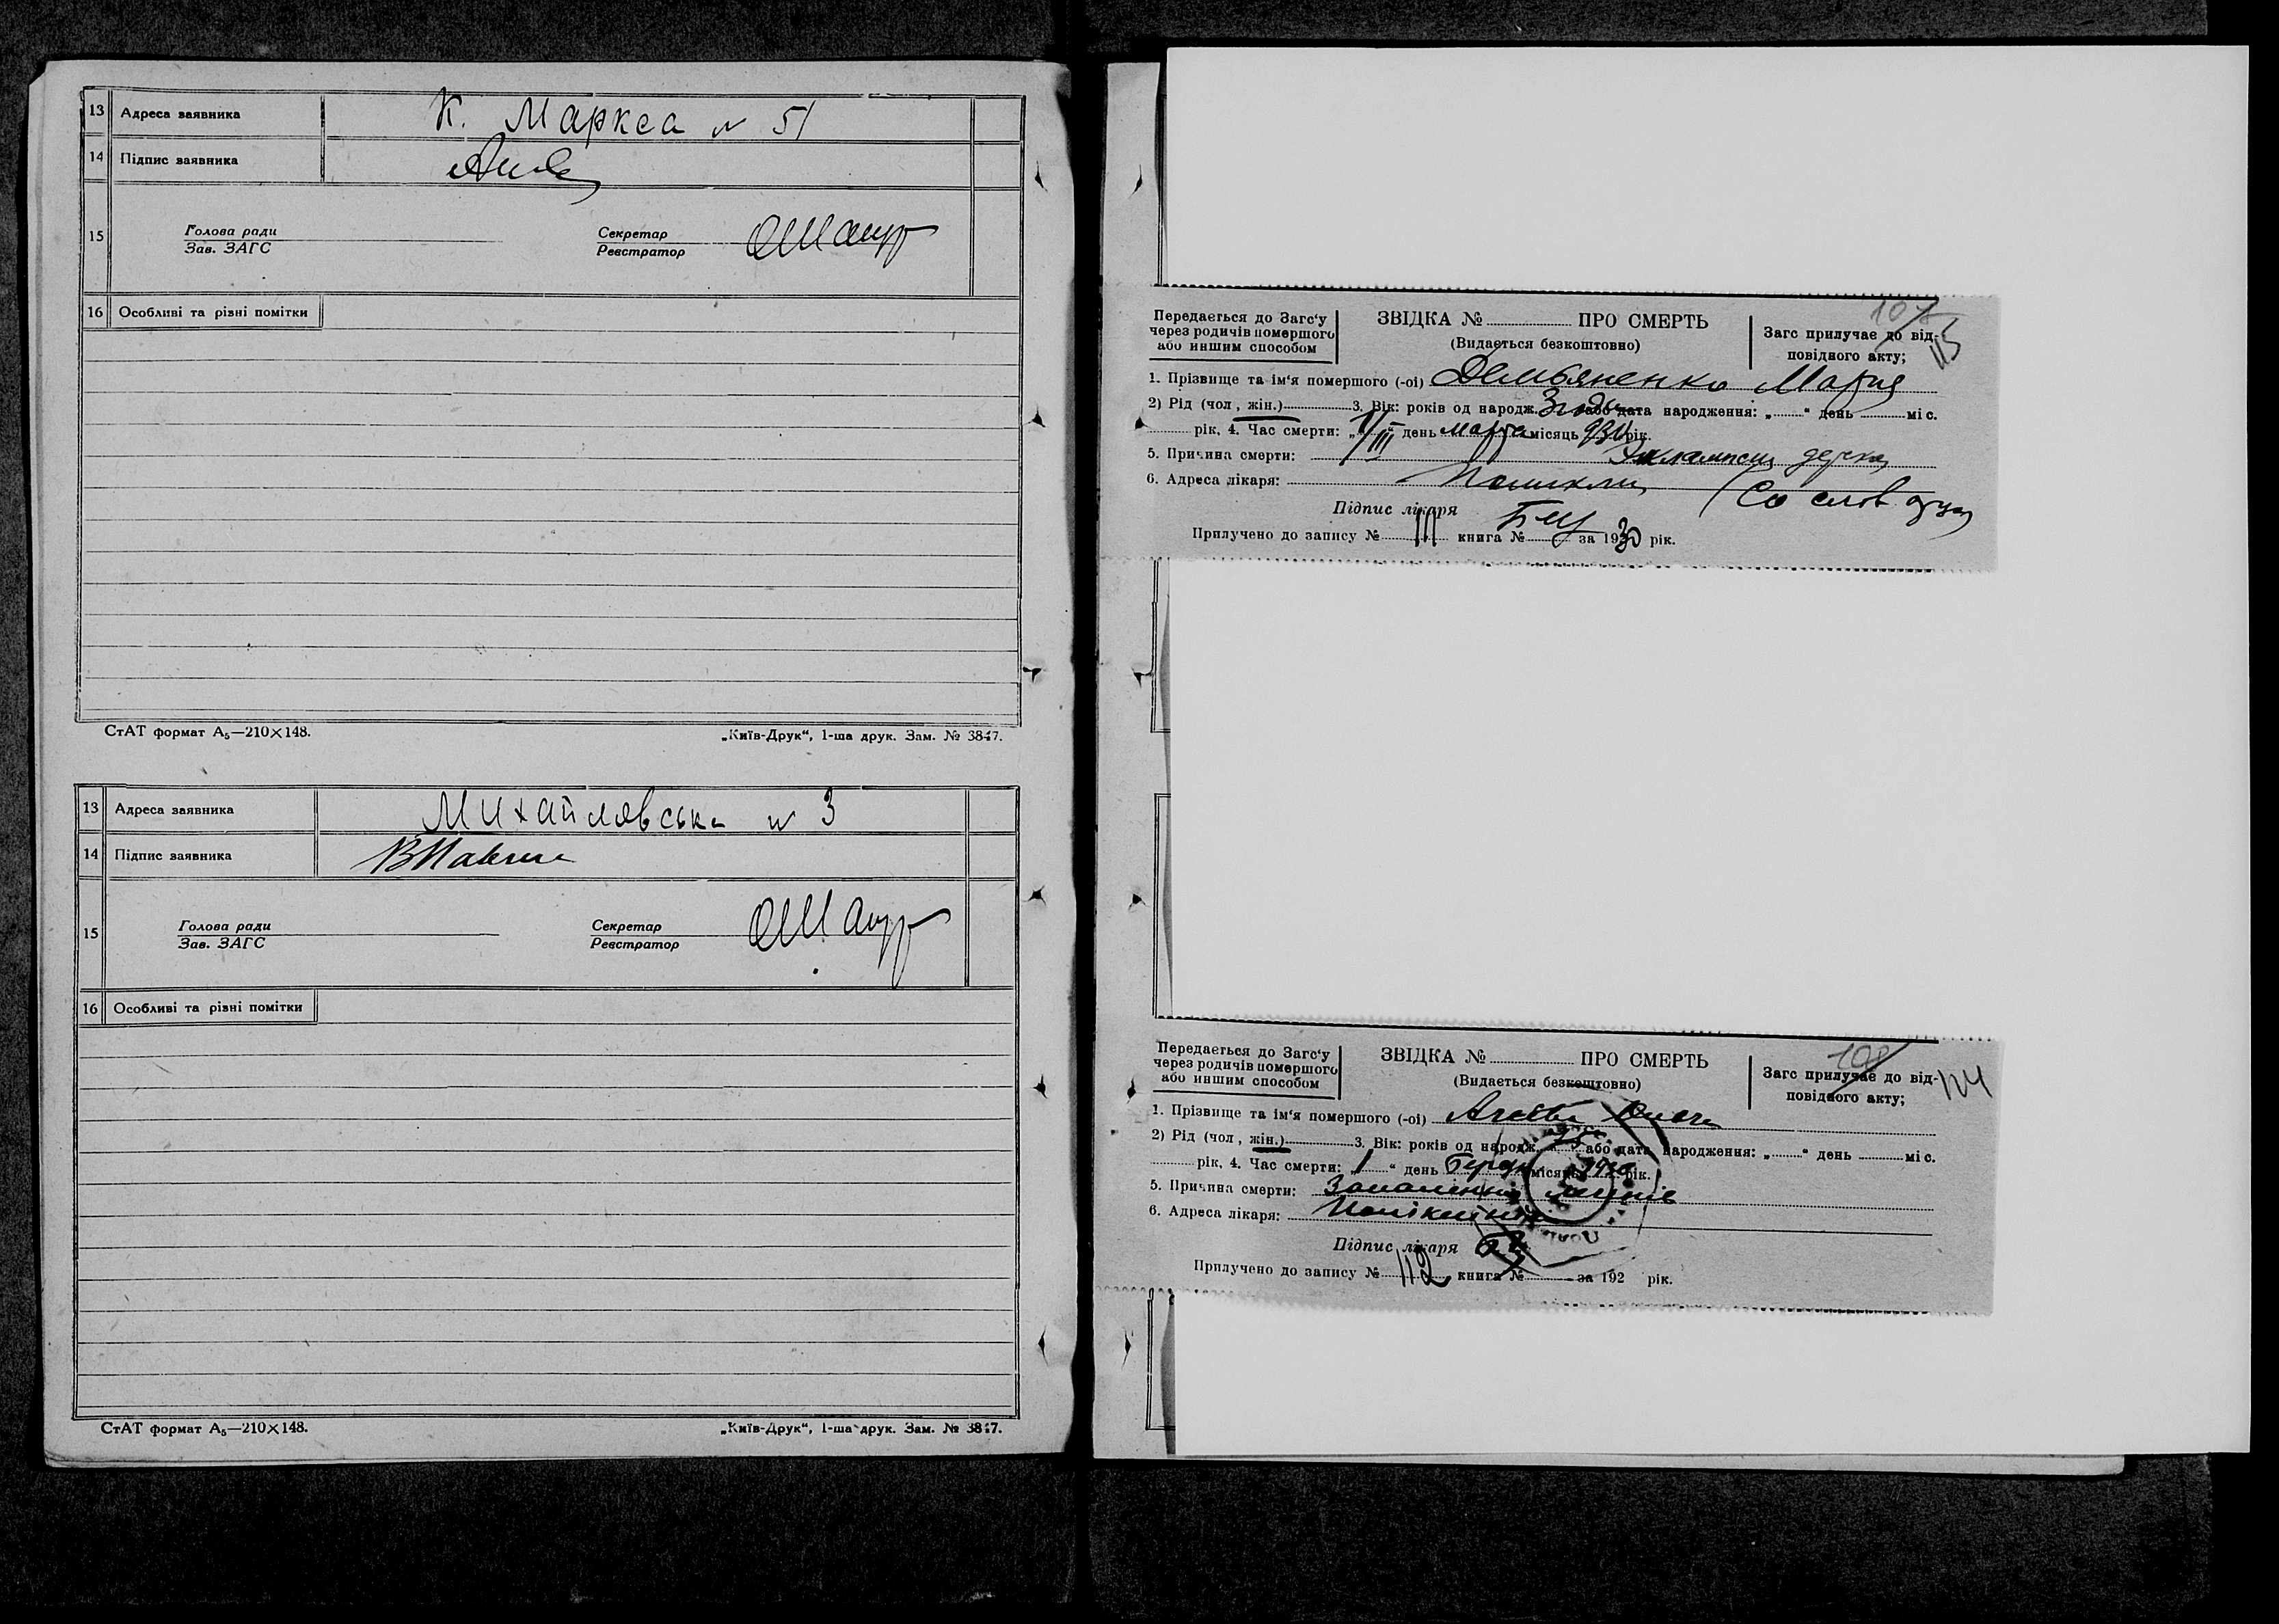 13 Адреса заявника К. Маркса № 51
14 Підпис заявника
15 Голова ради Секретар
Зав. ЗАГС Реєстратор
16 Особливі та різні помітки
СтАТ формат А₅—210×148. „Київ-Друк“, 1-ша друк. Зам. № 3847.
13 Адреса заявника Михайловська № 3
14 Підпис заявника
15 Голова ради Секретар
Зав. ЗАГС Реєстратор
16 Особливі та різні помітки
СтАТ формат А₅—210×148. „Київ-Друк“, 1-ша друк. Зам. № 3847.
Передається до Загс‘у
через родичів помершого
або иншим способом
ЗВІДКА № ПРО СМЕРТЬ
(Видається безкоштовно)
107
Загс прилучає до від-
повідного акту;
115
1. Прізвище та ім‘я помершого (-ої) Демьяненко Мария
2) Рід (чол , жін.) 3. Вік: років од народж. або дата народження: „ “ день міс.
рік, 4. Час смерти: „ “ день марта місяць 930 рік.
5. Причина смерти: Эклампсия детская
6. Адреса лікаря: (Со слов отца)
Підпис лікаря
Прилучено до запису № 111 книга № за 1930 рік.
Передається до Загс‘у
через родичів помершого
або иншим способом
ЗВІДКА № ПРО СМЕРТЬ
(Видається безкоштовно)
108
Загс прилучає до від-
повідного акту;
114
1. Прізвище та ім‘я помершого (-ої)
2) Рід (чол , жін.) 3. Вік: років од народж. або дата народження: „ “ день міс.
рік, 4. Час смерти: „ 1 “ день місяць 1930 рік.
5. Причина смерти: Запалення легенів
6. Адреса лікаря:
Підпис лікаря
Прилучено до запису № 112 книга № за 192 рік.